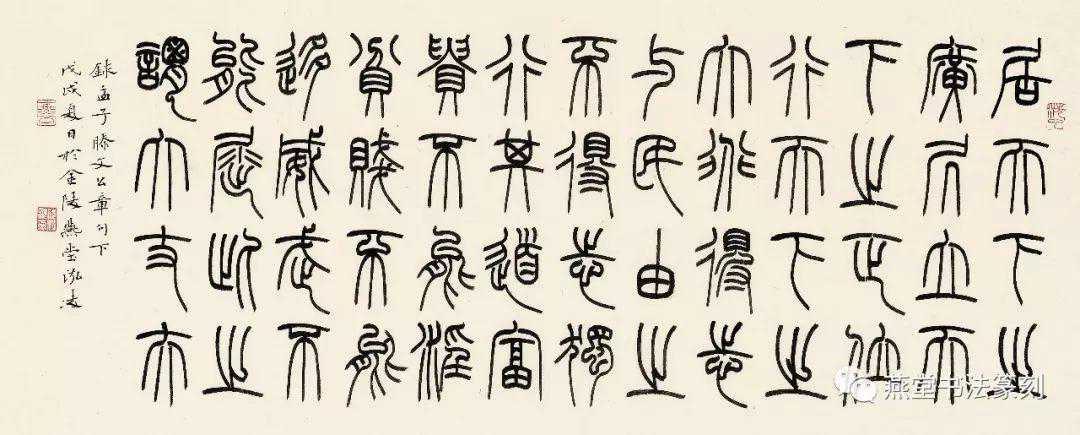 居天下之
廣居立天
下之正位
行天下之
大道得志
与民由之
不得志獨
行其道富
貴不能淫
貧賤不能
移威武不
能屈此之
謂大丈夫
錄孟子滕文公章句下
戊戌夏日於金陵燕堂
燕堂书法篆刻